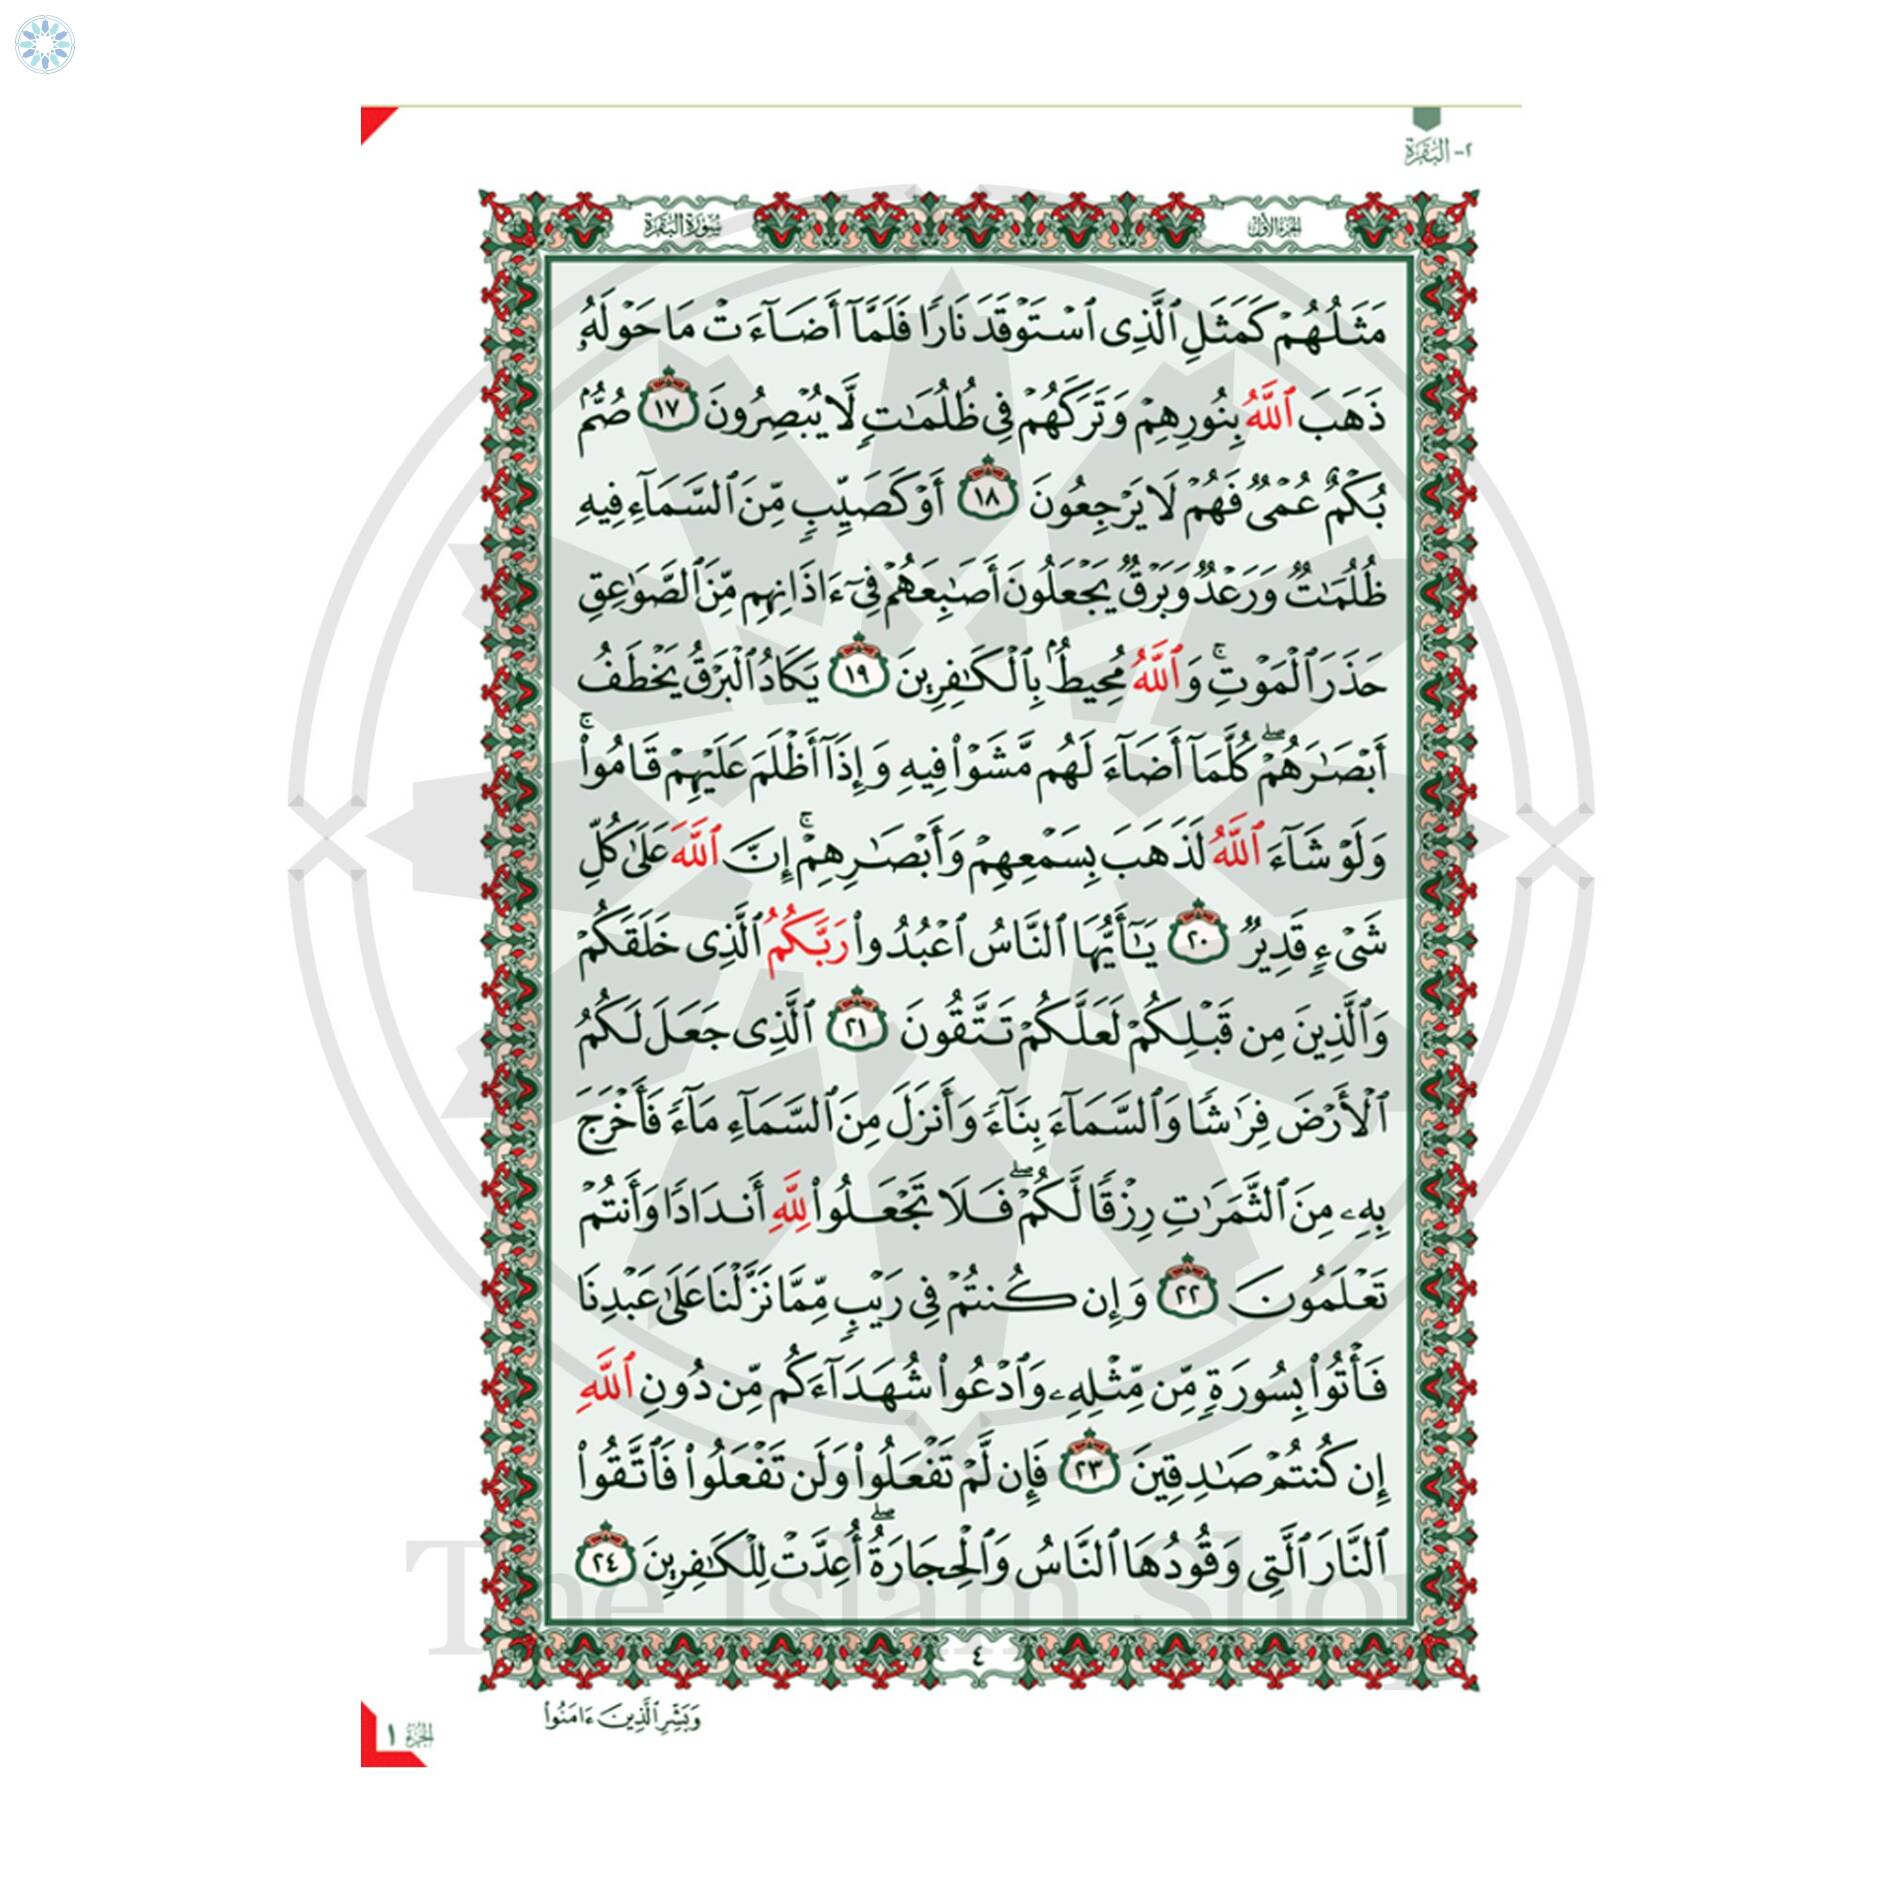 ٢- البَقَرَة
الجزء الأول
سورة البقرة
مَثَلُهُمْ كَمَثَلِ ٱلَّذِى ٱسْتَوْقَدَ نَارًا فَلَمَّآ أَضَآءَتْ مَا حَوْلَهُۥ
ذَهَبَ ٱللَّهُ بِنُورِهِمْ وَتَرَكَهُمْ فِى ظُلُمَٰتٍ لَّا يُبْصِرُونَ ١٧ صُمٌّۢ
بُكْمٌ عُمْىٌ فَهُمْ لَا يَرْجِعُونَ ١٨ أَوْ كَصَيِّبٍ مِّنَ ٱلسَّمَآءِ فِيهِ
ظُلُمَٰتٌ وَرَعْدٌ وَبَرْقٌ يَجْعَلُونَ أَصَٰبِعَهُمْ فِىٓ ءَاذَانِهِم مِّنَ ٱلصَّوَٰعِقِ
حَذَرَ ٱلْمَوْتِ ۚ وَٱللَّهُ مُحِيطٌۢ بِٱلْكَٰفِرِينَ ١٩ يَكَادُ ٱلْبَرْقُ يَخْطَفُ
أَبْصَٰرَهُمْ ۖ كُلَّمَآ أَضَآءَ لَهُم مَّشَوْا۟ فِيهِ وَإِذَآ أَظْلَمَ عَلَيْهِمْ قَامُوا۟ ۚ
وَلَوْ شَآءَ ٱللَّهُ لَذَهَبَ بِسَمْعِهِمْ وَأَبْصَٰرِهِمْ ۚ إِنَّ ٱللَّهَ عَلَىٰ كُلِّ
شَىْءٍ قَدِيرٌ ٢٠ يَٰٓأَيُّهَا ٱلنَّاسُ ٱعْبُدُوا۟ رَبَّكُمُ ٱلَّذِى خَلَقَكُمْ
وَٱلَّذِينَ مِن قَبْلِكُمْ لَعَلَّكُمْ تَتَّقُونَ ٢١ ٱلَّذِى جَعَلَ لَكُمُ
ٱلْأَرْضَ فِرَٰشًا وَٱلسَّمَآءَ بِنَآءً وَأَنزَلَ مِنَ ٱلسَّمَآءِ مَآءً فَأَخْرَجَ
بِهِۦ مِنَ ٱلثَّمَرَٰتِ رِزْقًا لَّكُمْ ۖ فَلَا تَجْعَلُوا۟ لِلَّهِ أَندَادًا وَأَنتُمْ
تَعْلَمُونَ ٢٢ وَإِن كُنتُمْ فِى رَيْبٍ مِّمَّا نَزَّلْنَا عَلَىٰ عَبْدِنَا
فَأْتُوا۟ بِسُورَةٍ مِّن مِّثْلِهِۦ وَٱدْعُوا۟ شُهَدَآءَكُم مِّن دُونِ ٱللَّهِ
إِن كُنتُمْ صَٰدِقِينَ ٢٣ فَإِن لَّمْ تَفْعَلُوا۟ وَلَن تَفْعَلُوا۟ فَٱتَّقُوا۟
ٱلنَّارَ ٱلَّتِى وَقُودُهَا ٱلنَّاسُ وَٱلْحِجَارَةُ ۖ أُعِدَّتْ لِلْكَٰفِرِينَ ٢٤
The Islam Shop
٤
وَبَشِّرِ ٱلَّذِينَ ءَامَنُوا۟
الجزء ١